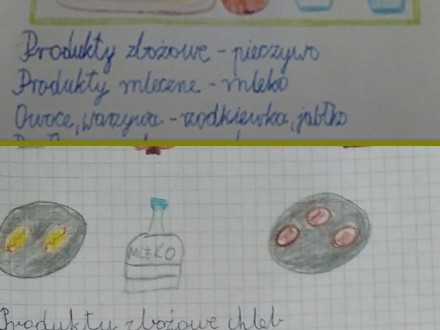 Produkty zbożowe - pieczywo
Produkty mleczne - mleko
Owoce, warzywa - rzodkiewka, jabłko
MLEKO
Produkty zbożowe chleb